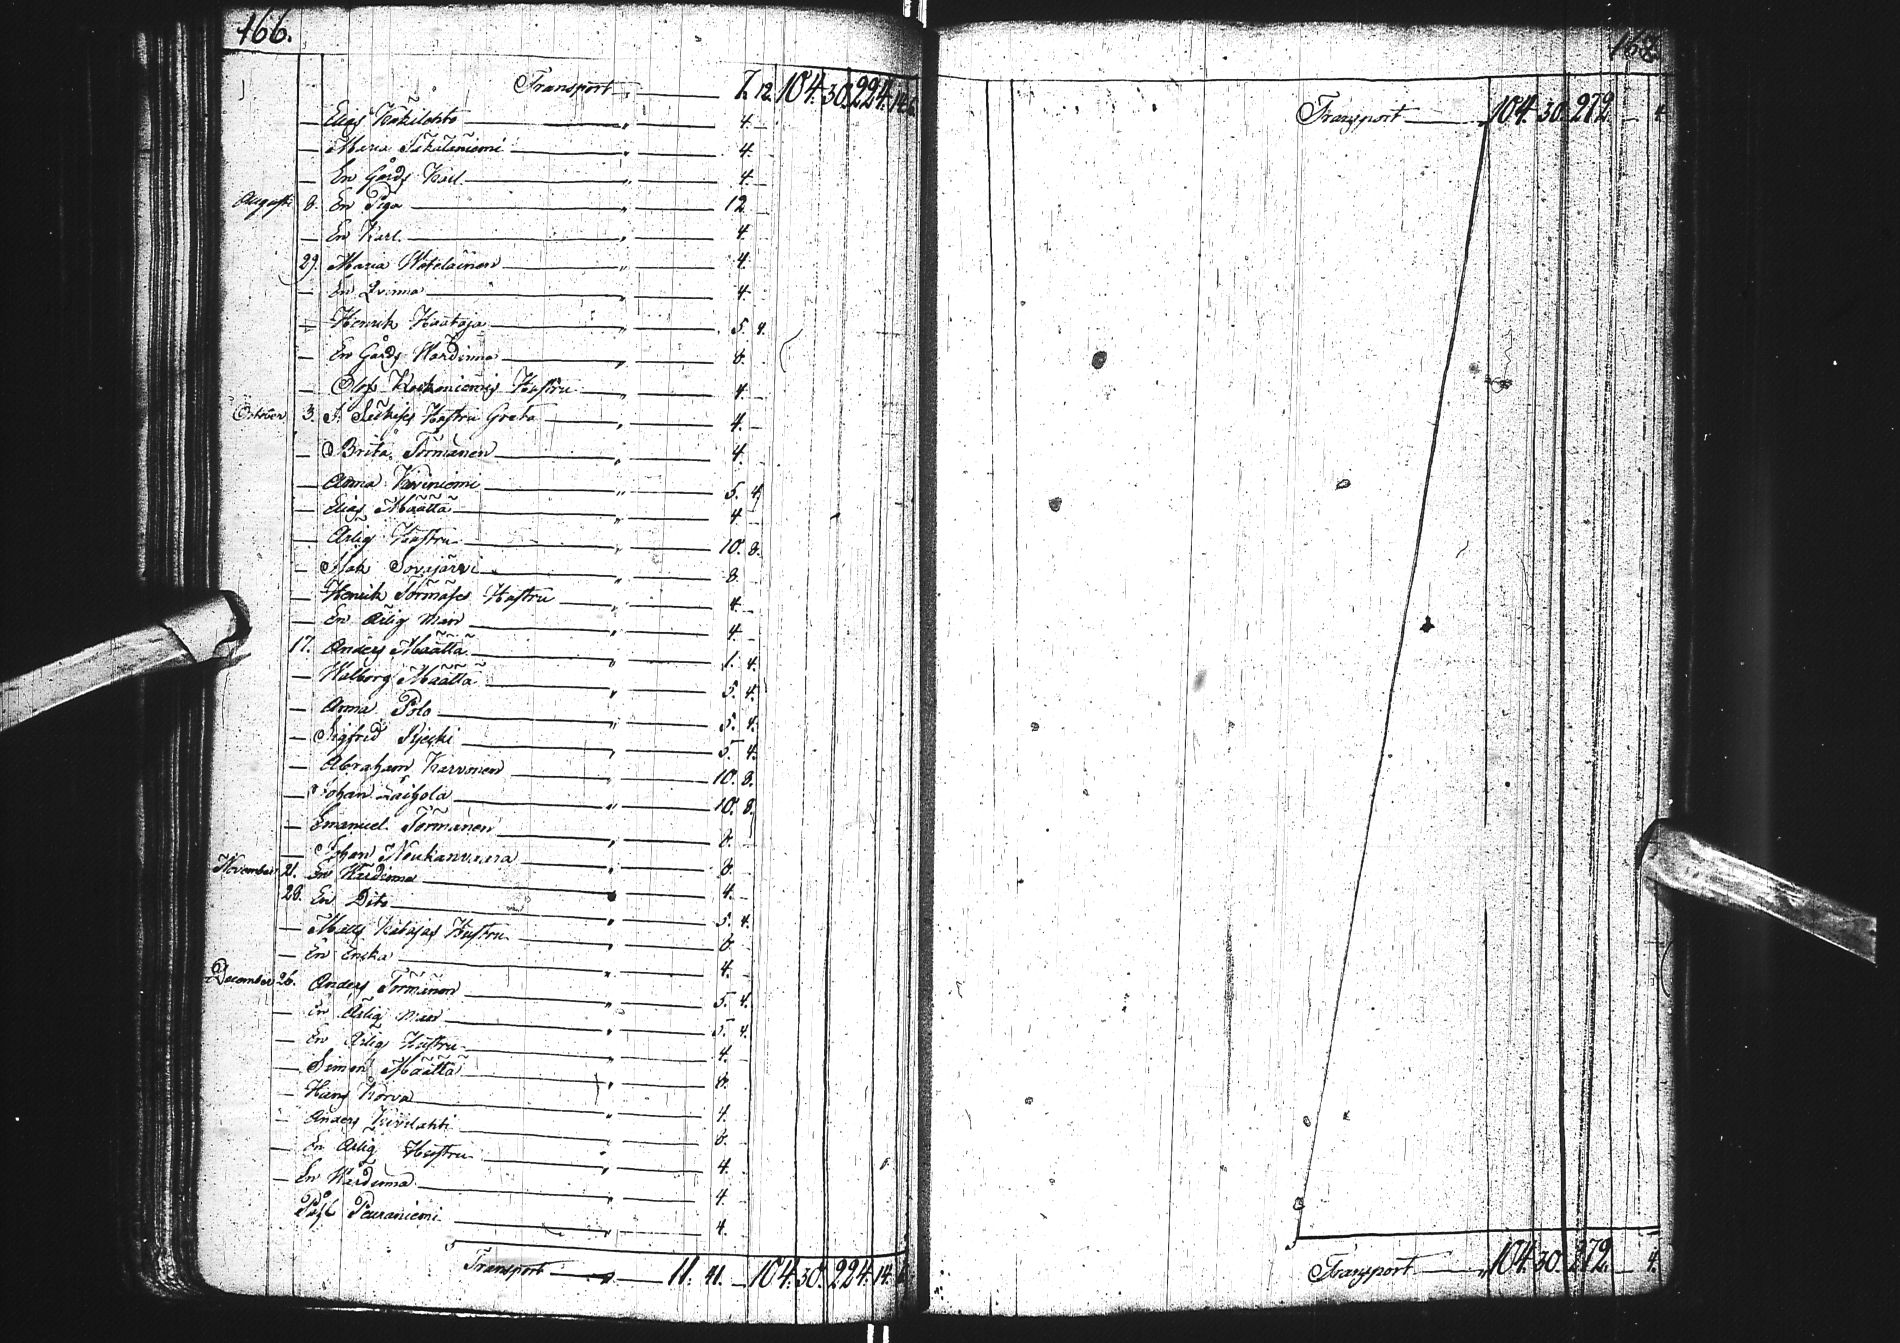 166.
Transport 7. 12. 104. 30. 224. 14.
— Elias 4. —
— Maria 4. —
— En Gårds Karl 4. —
Augusti 8. En Piga 12 —
— En Karl 4 —
29. Maria 4. —
— En Qvinna 4 —
— Henrik Haataja 5. 4.
— En Gårds Wärdinna 8.
— Olof Koskeniemis Hustru 4. —
October 3. Hustru Greta 4. —
— Brita Törmänen 4. —
— Anna Kiviniemi 5. 4
— Elias Määttä 4 —
— Ärlig Hustru 10. 8.
— Isak 8. —
— Henrik Törmäses Hustru 4 —
— En ärlig man 4. —
17. Anders Määttä 1. 4.
— Walborg Määttä 5. 4.
— Anna Polo 5. 4.
— Sigfrid 5. 4.
— Abraham Karvonen 10. 8.
— Johan 10. 8.
— Emanuel Törmänen 8.
— Johan 8.
November 21. En Wärdinna 4. —
28. En Dito 5. 4.
— Matts Hustru 8
— En Encka 4. —
December 26. Anders Törmänen 5. 4.
— En Ärlig man 5. 4.
— En Ärlig Hustru 4. —
— Simon Määttä 8.
— Hans Korva 4. —
— Anders 8. —
— En ärlig Hustru 4. —
— En Wärdinna 4 —
Påhl Peuraniemi 4. —
Transport 11. 41. 104. 30. 224. 14.
168.
Transport 104. 30. 272. — 4.
Transport 104. 30. 272. — 4.